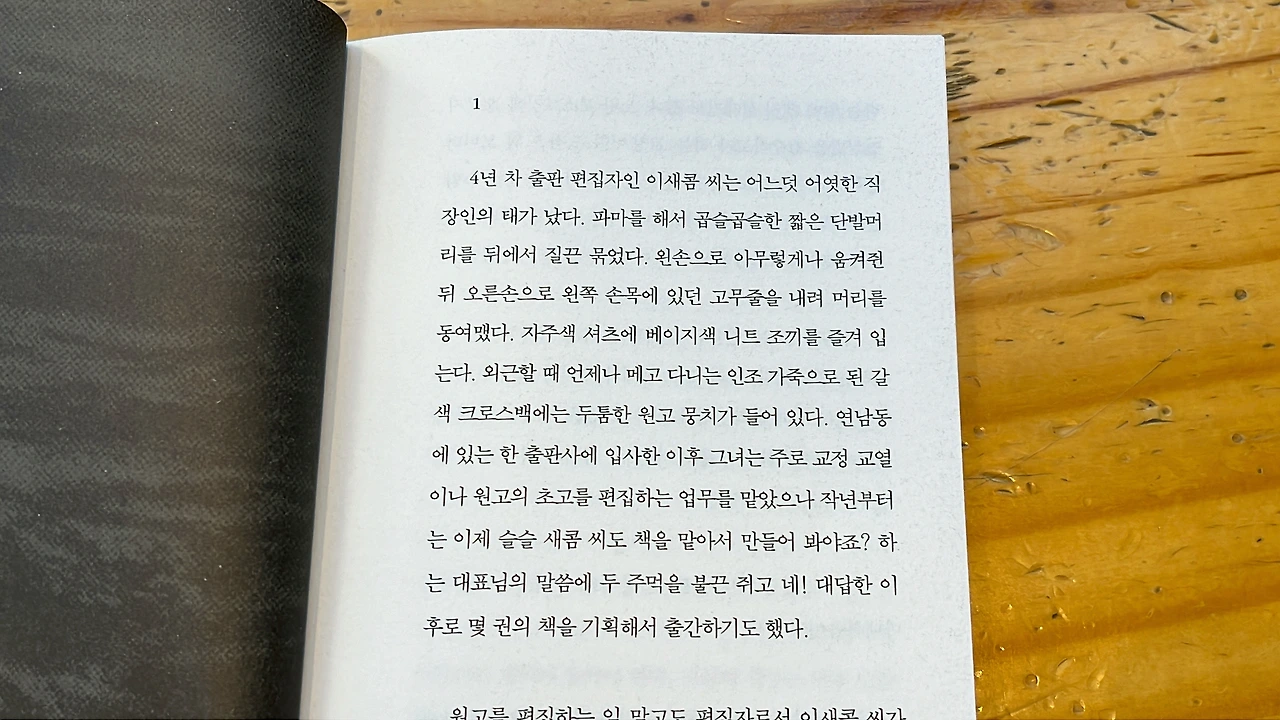 1
4년 차 출판 편집자인 이새콤 씨는 어느덧 어엿한 직
장인의 태가 났다. 파마를 해서 곱슬곱슬한 짧은 단발머
리를 뒤에서 질끈 묶었다. 왼손으로 아무렇게나 움켜쥔
뒤 오른손으로 왼쪽 손목에 있던 고무줄을 내려 머리를
동여맸다. 자주색 셔츠에 베이지색 니트 조끼를 즐겨 입
는다. 외근할 때 언제나 메고 다니는 인조 가죽으로 된 갈
색 크로스백에는 두툼한 원고 뭉치가 들어 있다. 연남동
에 있는 한 출판사에 입사한 이후 그녀는 주로 교정 교열
이나 원고의 초고를 편집하는 업무를 맡았으나 작년부터
는 이제 슬슬 새콤 씨도 책을 맡아서 만들어 봐야죠? 하
는 대표님의 말씀에 두 주먹을 불끈 쥐고 네! 대답한 이
후로 몇 권의 책을 기획해서 출간하기도 했다.
원고를 편집하는 일 말고도 편집자로서 이새콤 씨가